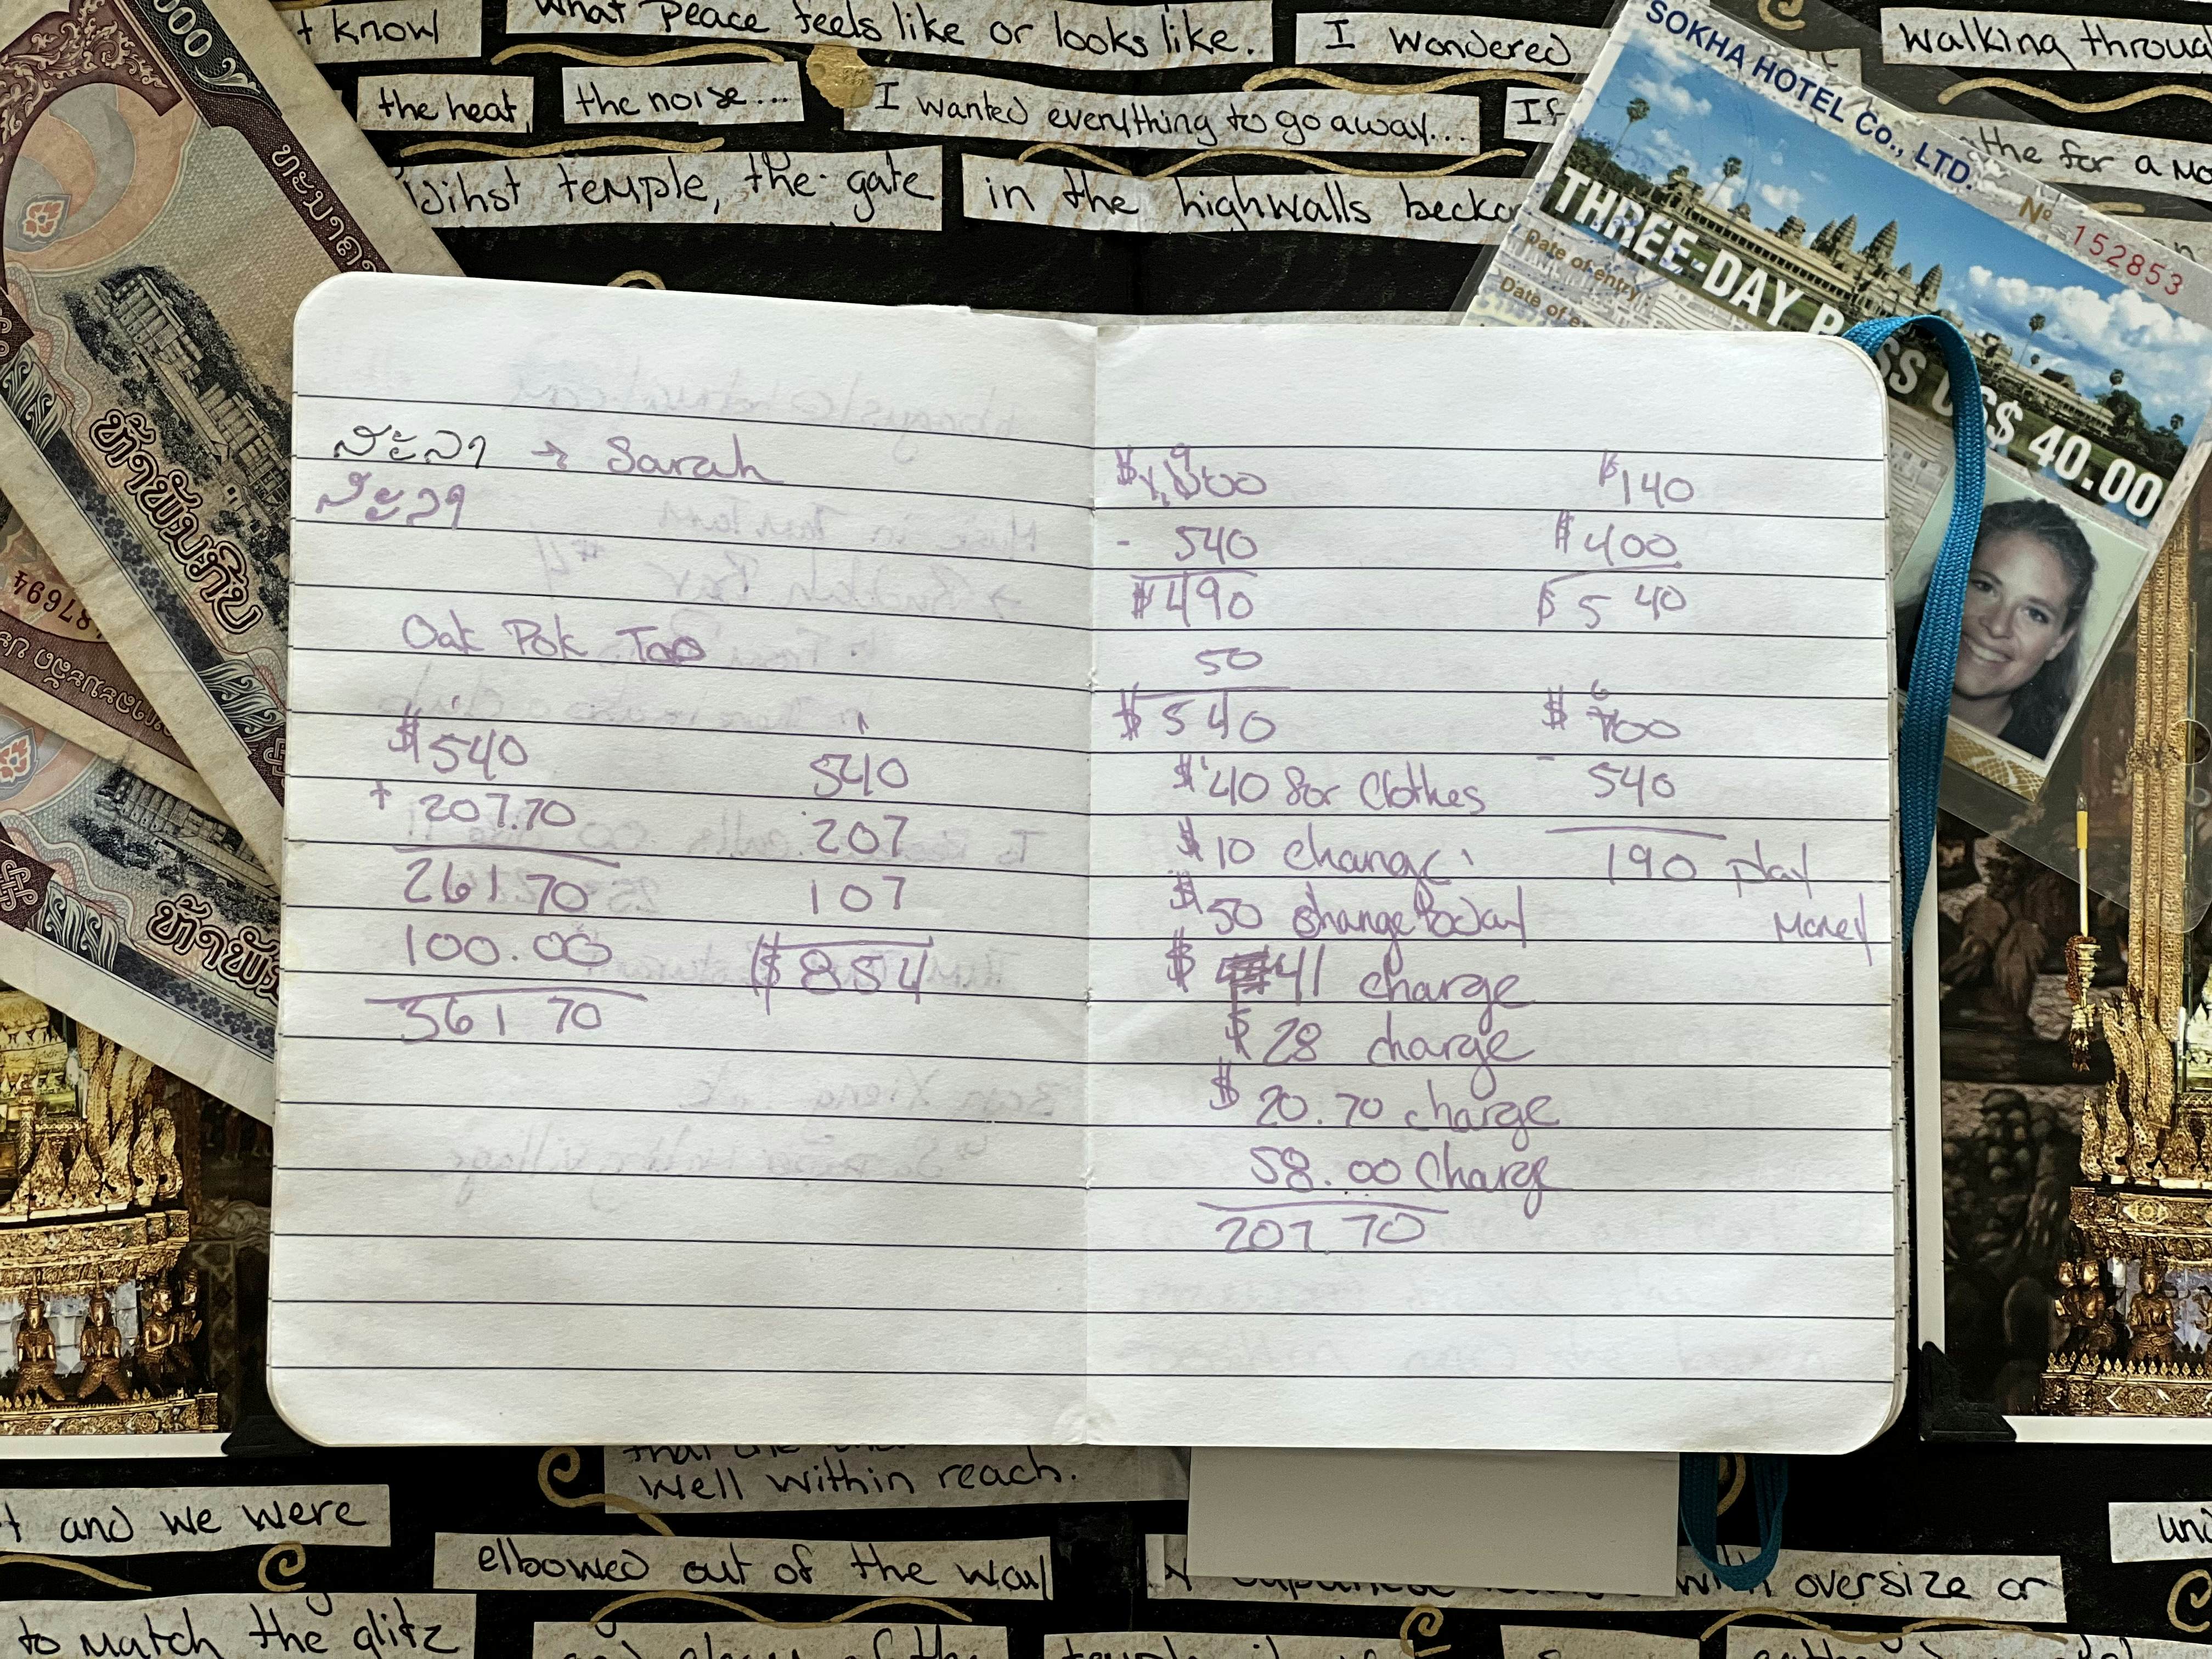 t know
What peace feels like or looks like.
I wondered
walking throug
the heat,
the noise...
I wanted everything to go away...
If
the for a mo
dihst temple, the gate
in the highwalls becko
SOKHA HOTEL Co., LTD.
Nº 152853
THREE-DAY P SS US$ 40.00
Date of entry:
000
ຫ້າພັນກີບ
87694
ຫ້າພັນ
ສະລາ → Sarah
ສະລາ
Oak Pok Tao
$540
+ 207.70
261 70
100.00
361 70
540
207
107
$854
$1,000
- 540
$490
50
$540
$40 for Clothes
$10 change
$50 change today
$ 41 charge
$28 charge
$20.70 charge
58.00 Charge
207.70
$140
$400
$540
$700
- 540
190 play
money
well within reach.
t and we were
elbowed out of the way
with oversize or
to match the glitz